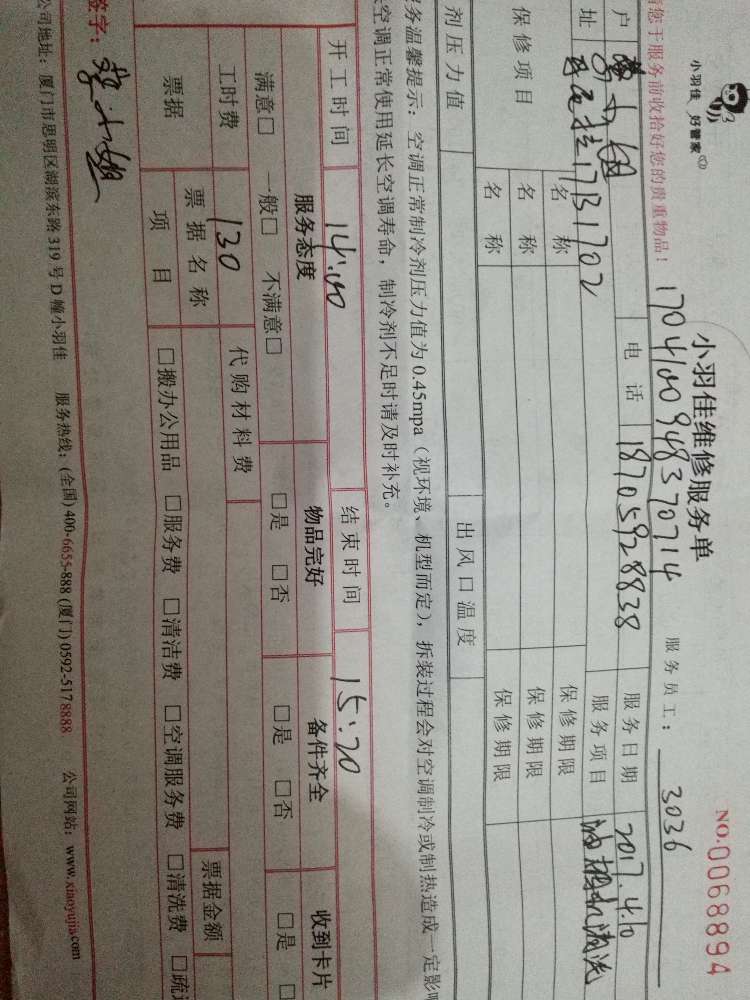 小羽佳 好管家
小羽佳维修服务单
NO.0068894
170410094837 0714
服务员工：3036
您于服务前收拾好您的贵重物品！
户
电话 18705928838
服务日期 2017.4.10
址 17B1702
服务项目 油烟机清洗
保修项目
名称 保修期限
名称 保修期限
名称 保修期限
剂压力值 出风口温度
务温馨提示：空调正常制冷剂压力值为 0.45mpa（视环境、机型而定），拆装过程会对空调制冷或制热造成一定影
空调正常使用延长空调寿命，制冷剂不足时请及时补充。
开工时间 14:00 结束时间 15:20
服务态度 物品完好 备件齐全 收到卡片
满意□ 一般□ 不满意□ □是 □否 □是 □否 □是 □
工时费 130 代购材料费
票据 票据名称 票据金额
项目 □搬办公用品 □服务费 □清洁费 □空调服务费 □清洗费 □疏
签字：
公司地址：厦门市思明区湖滨东路 319 号 D 幢小羽佳 服务热线：(全国) 400-6655-888 (厦门) 0592-5178888 公司网站：www.xiaoyujia.com